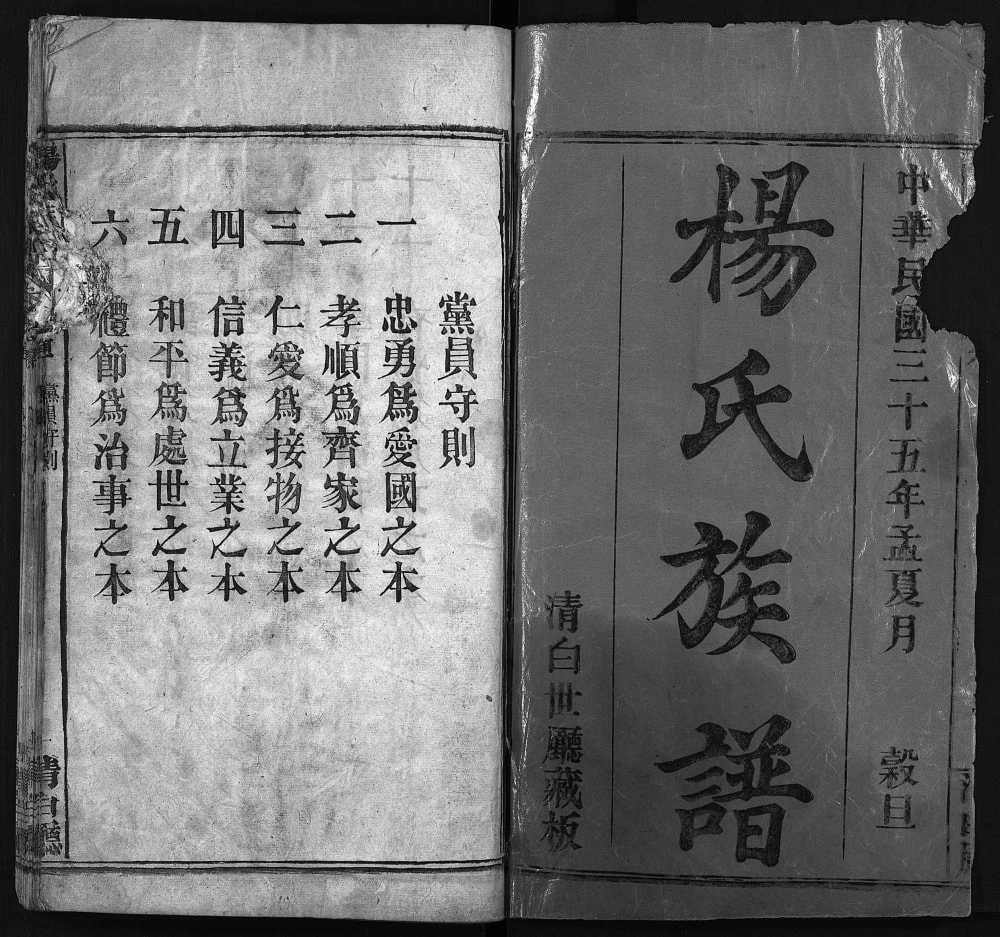 中華民國三十五年孟夏月 穀旦
楊氏族譜
清白世廳藏板
黨員守則
一 忠勇爲愛國之本
二 孝順爲齊家之本
三 仁愛爲接物之本
四 信義爲立業之本
五 和平爲處世之本
六 禮節爲治事之本
黨員守則
清白廳